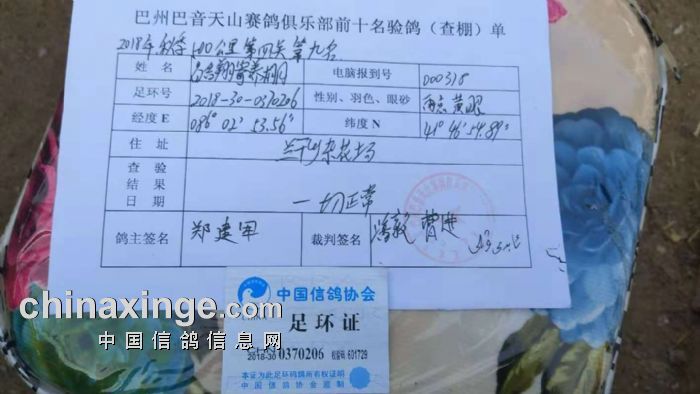 巴州巴音天山赛鸽俱乐部前十名验鸽（查棚）单
2018年秋季100公里第四关第九名
姓 名 电脑报到号 000315
足环号 2018-30-0370206 性别、羽色、眼砂 黄眼
经度E 086° 02' 53.56" 纬度N 41° 46' 54.89"
住 址
查验
结果 一切正常
日期
鸽主签名 郑建军 裁判签名
中国信鸽协会
足环证
2018-30 0370206 校验码 601729
本证为此足环鸽所有权证明
中国信鸽协会监制
chinaxinge.com
中国信鸽信息网